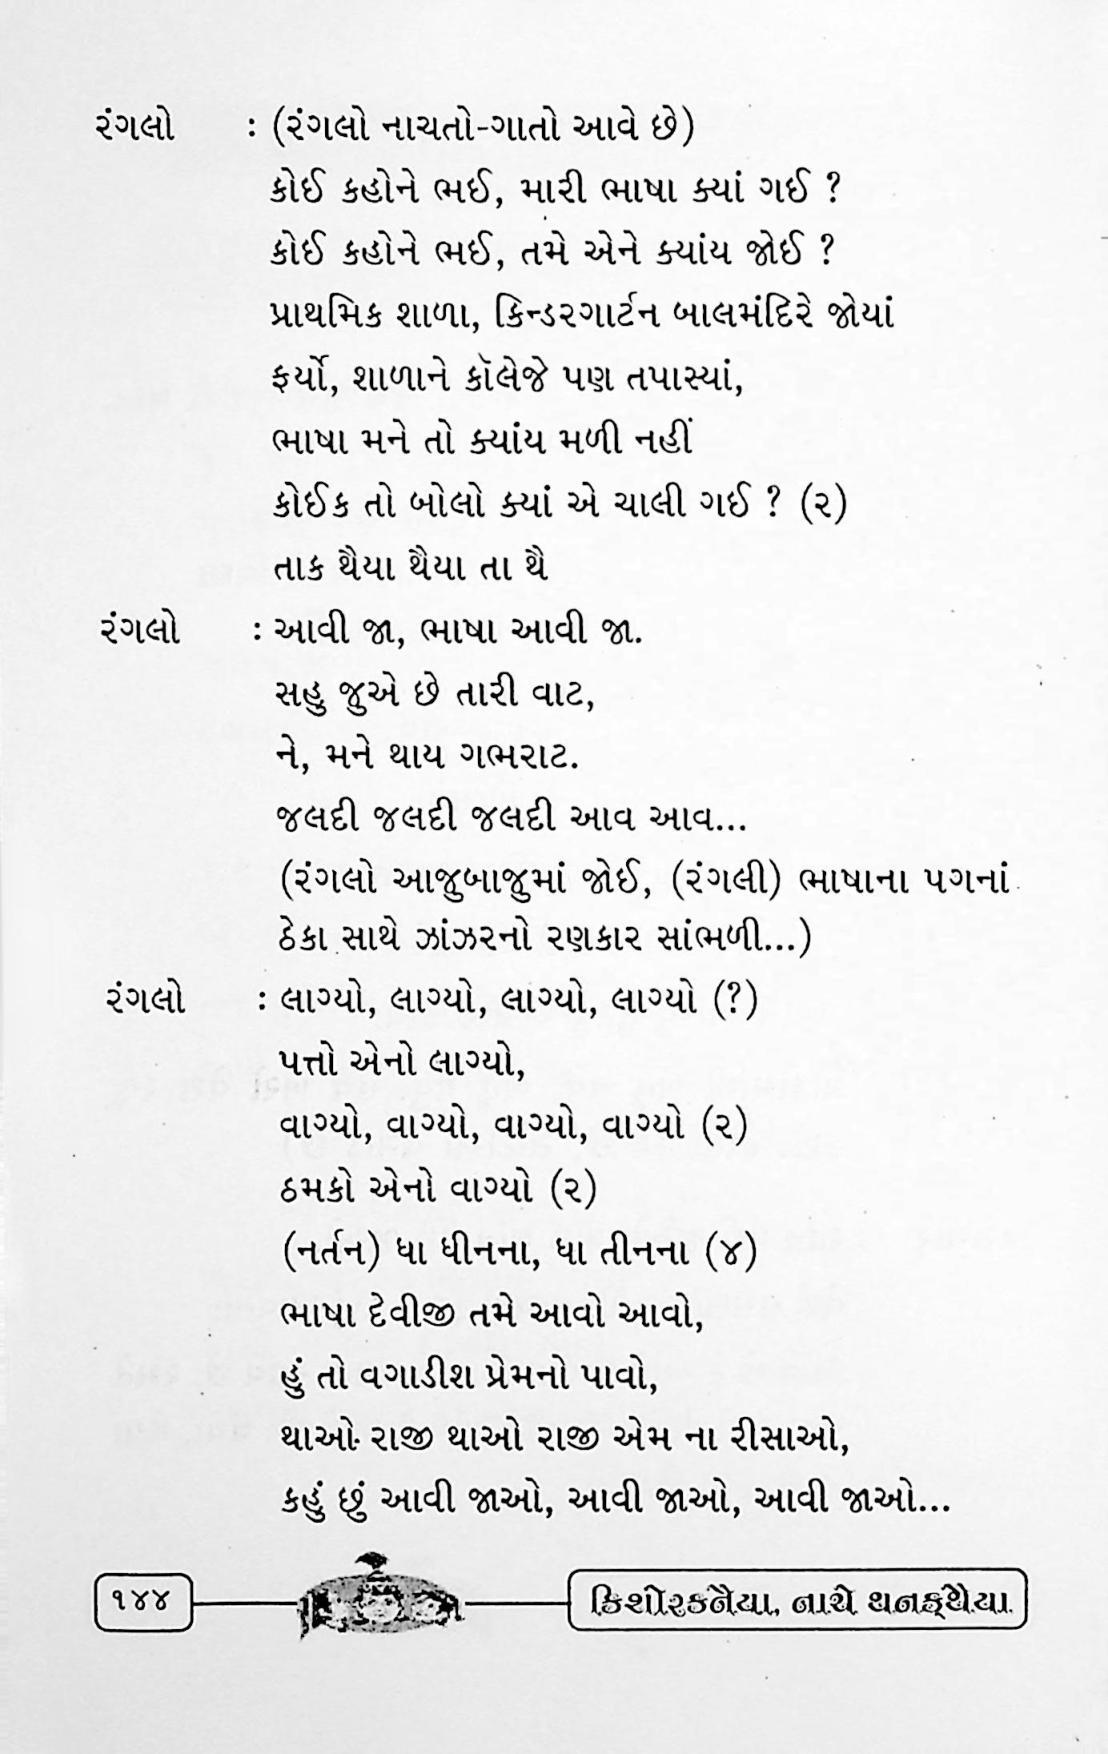 રંગલો : (રંગલો નાચતો-ગાતો આવે છે)
કોઈ કહોને ભઈ, મારી ભાષા ક્યાં ગઈ ?
કોઈ કહોને ભઈ, તમે એને ક્યાંય જોઈ ?
પ્રાથમિક શાળા, કિન્ડરગાર્ટન બાલમંદિરે જોયાં
ફર્યો, શાળાને કૉલેજે પણ તપાસ્યાં,
ભાષા મને તો ક્યાંય મળી નહીં
કોઈક તો બોલો ક્યાં એ ચાલી ગઈ ? (૨)
તાક થૈયા થૈયા તા થૈ
રંગલો : આવી જા, ભાષા આવી જા.
સહુ જુએ છે તારી વાટ,
ને, મને થાય ગભરાટ.
જલદી જલદી જલદી આવ આવ...
(રંગલો આજુબાજુમાં જોઈ, (રંગલી) ભાષાના પગનાં
ઠેકા સાથે ઝાંઝરનો રણકાર સાંભળી...)
રંગલો : લાગ્યો, લાગ્યો, લાગ્યો, લાગ્યો (?)
પત્તો એનો લાગ્યો,
વાગ્યો, વાગ્યો, વાગ્યો, વાગ્યો (૨)
ઠમકો એનો વાગ્યો (૨)
(નર્તન) ધા ધીનના, ધા તીનના (૪)
ભાષા દેવીજી તમે આવો આવો,
હું તો વગાડીશ પ્રેમનો પાવો,
થાઓ રાજી થાઓ રાજી એમ ના રીસાઓ,
કહું છું આવી જાઓ, આવી જાઓ, આવી જાઓ...
૧૪૪ કિશોરકનૈયા, નાચે થનક્થૈયા